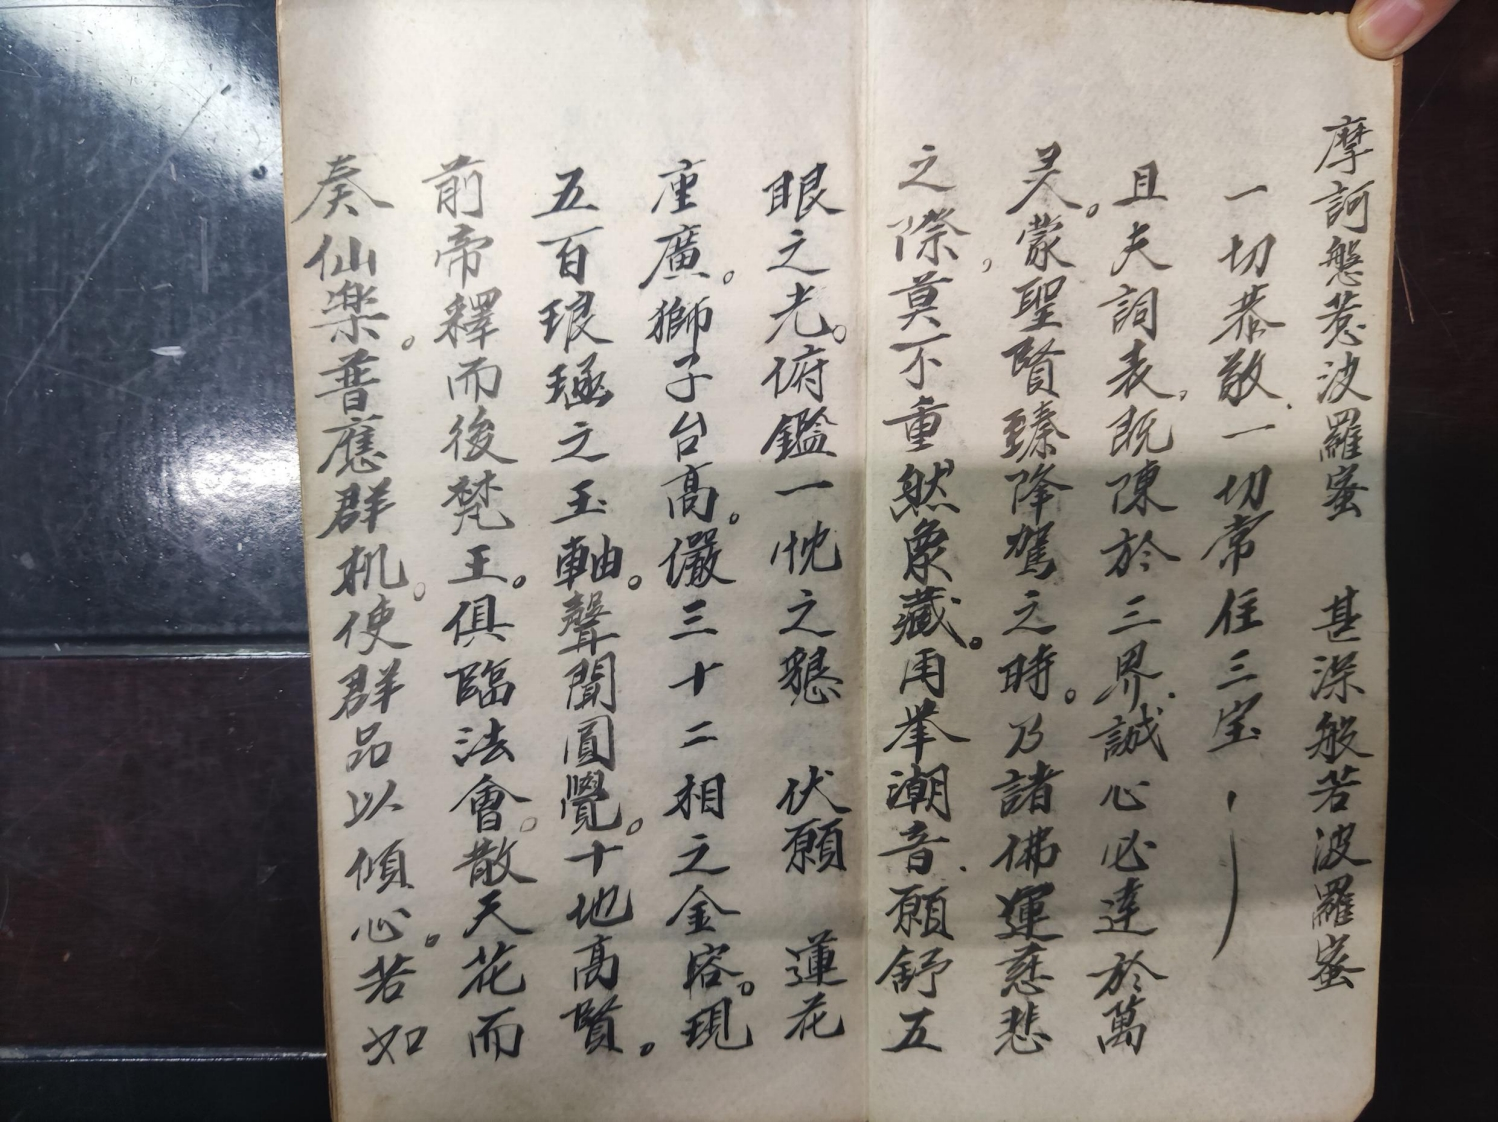 摩訶般若波羅蜜　甚深般若波羅蜜
一切恭敬、一切常住三宝
且夫詞表，既陳於三界、誠心必達於萬
灵。蒙聖賢臻降駕之時。乃諸佛運慈悲
之際，莫不重然象藏。用举潮音、願舒五
眼之光。俯鑑一忱之懇　伏願　蓮花
座廣。獅子台高。儼三十二相之金容。現
五百琅函之玉軸。聲聞圓覺。十地高賢。
前帝釋而後梵王。俱臨法會。散天花而
奏仙楽。普應群机。使群品以傾心。若如